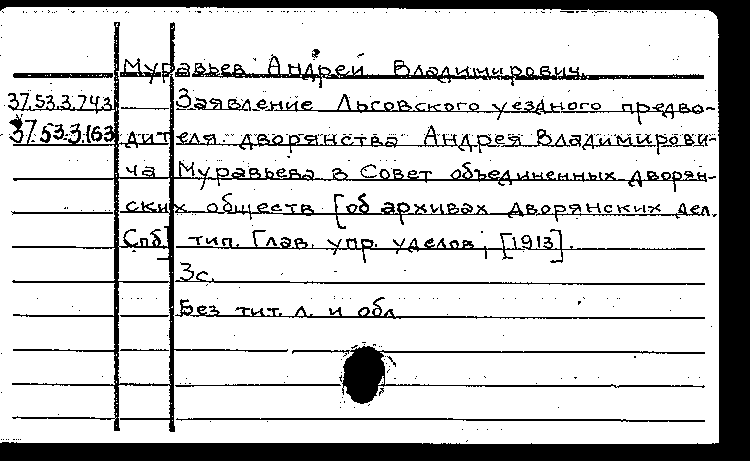 Муравьев Андрей Владимирович.
37.53.3.743 Заявление Льговского уездного предво-
37.53.3.163 дителя дворянства Андрея Владимирови-
ча Муравьева в Совет объединенных дворян-
ских обществ [об архивах дворянских деп.
Спб] тип. Глав. упр. уделов, [1913].
3с.
Без тит. л. и обл.